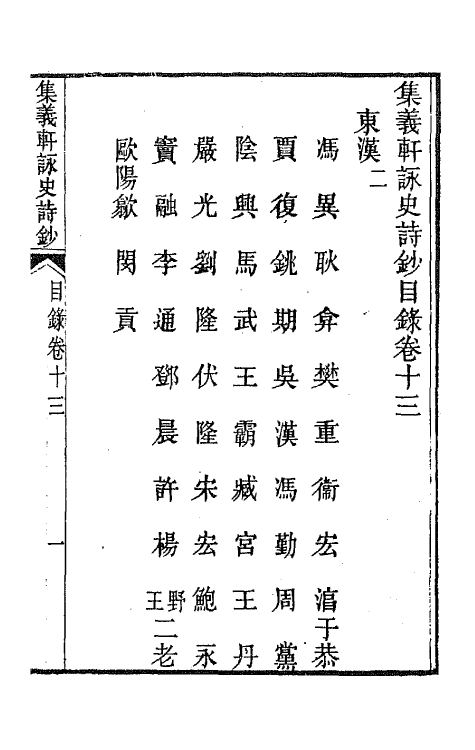 集義軒詠史詩鈔目錄卷十三
東漢二
馮異耿弇樊重衞宏淯于恭
賈復銚期吳漢馮勤周黨
陰興馬武王霸臧宮王丹
嚴光劉隆伏隆宋宏鮑永
竇融李通鄧晨許楊野王二老
歐陽歙閔貢
集義軒詠史詩鈔
目錄卷十三
一